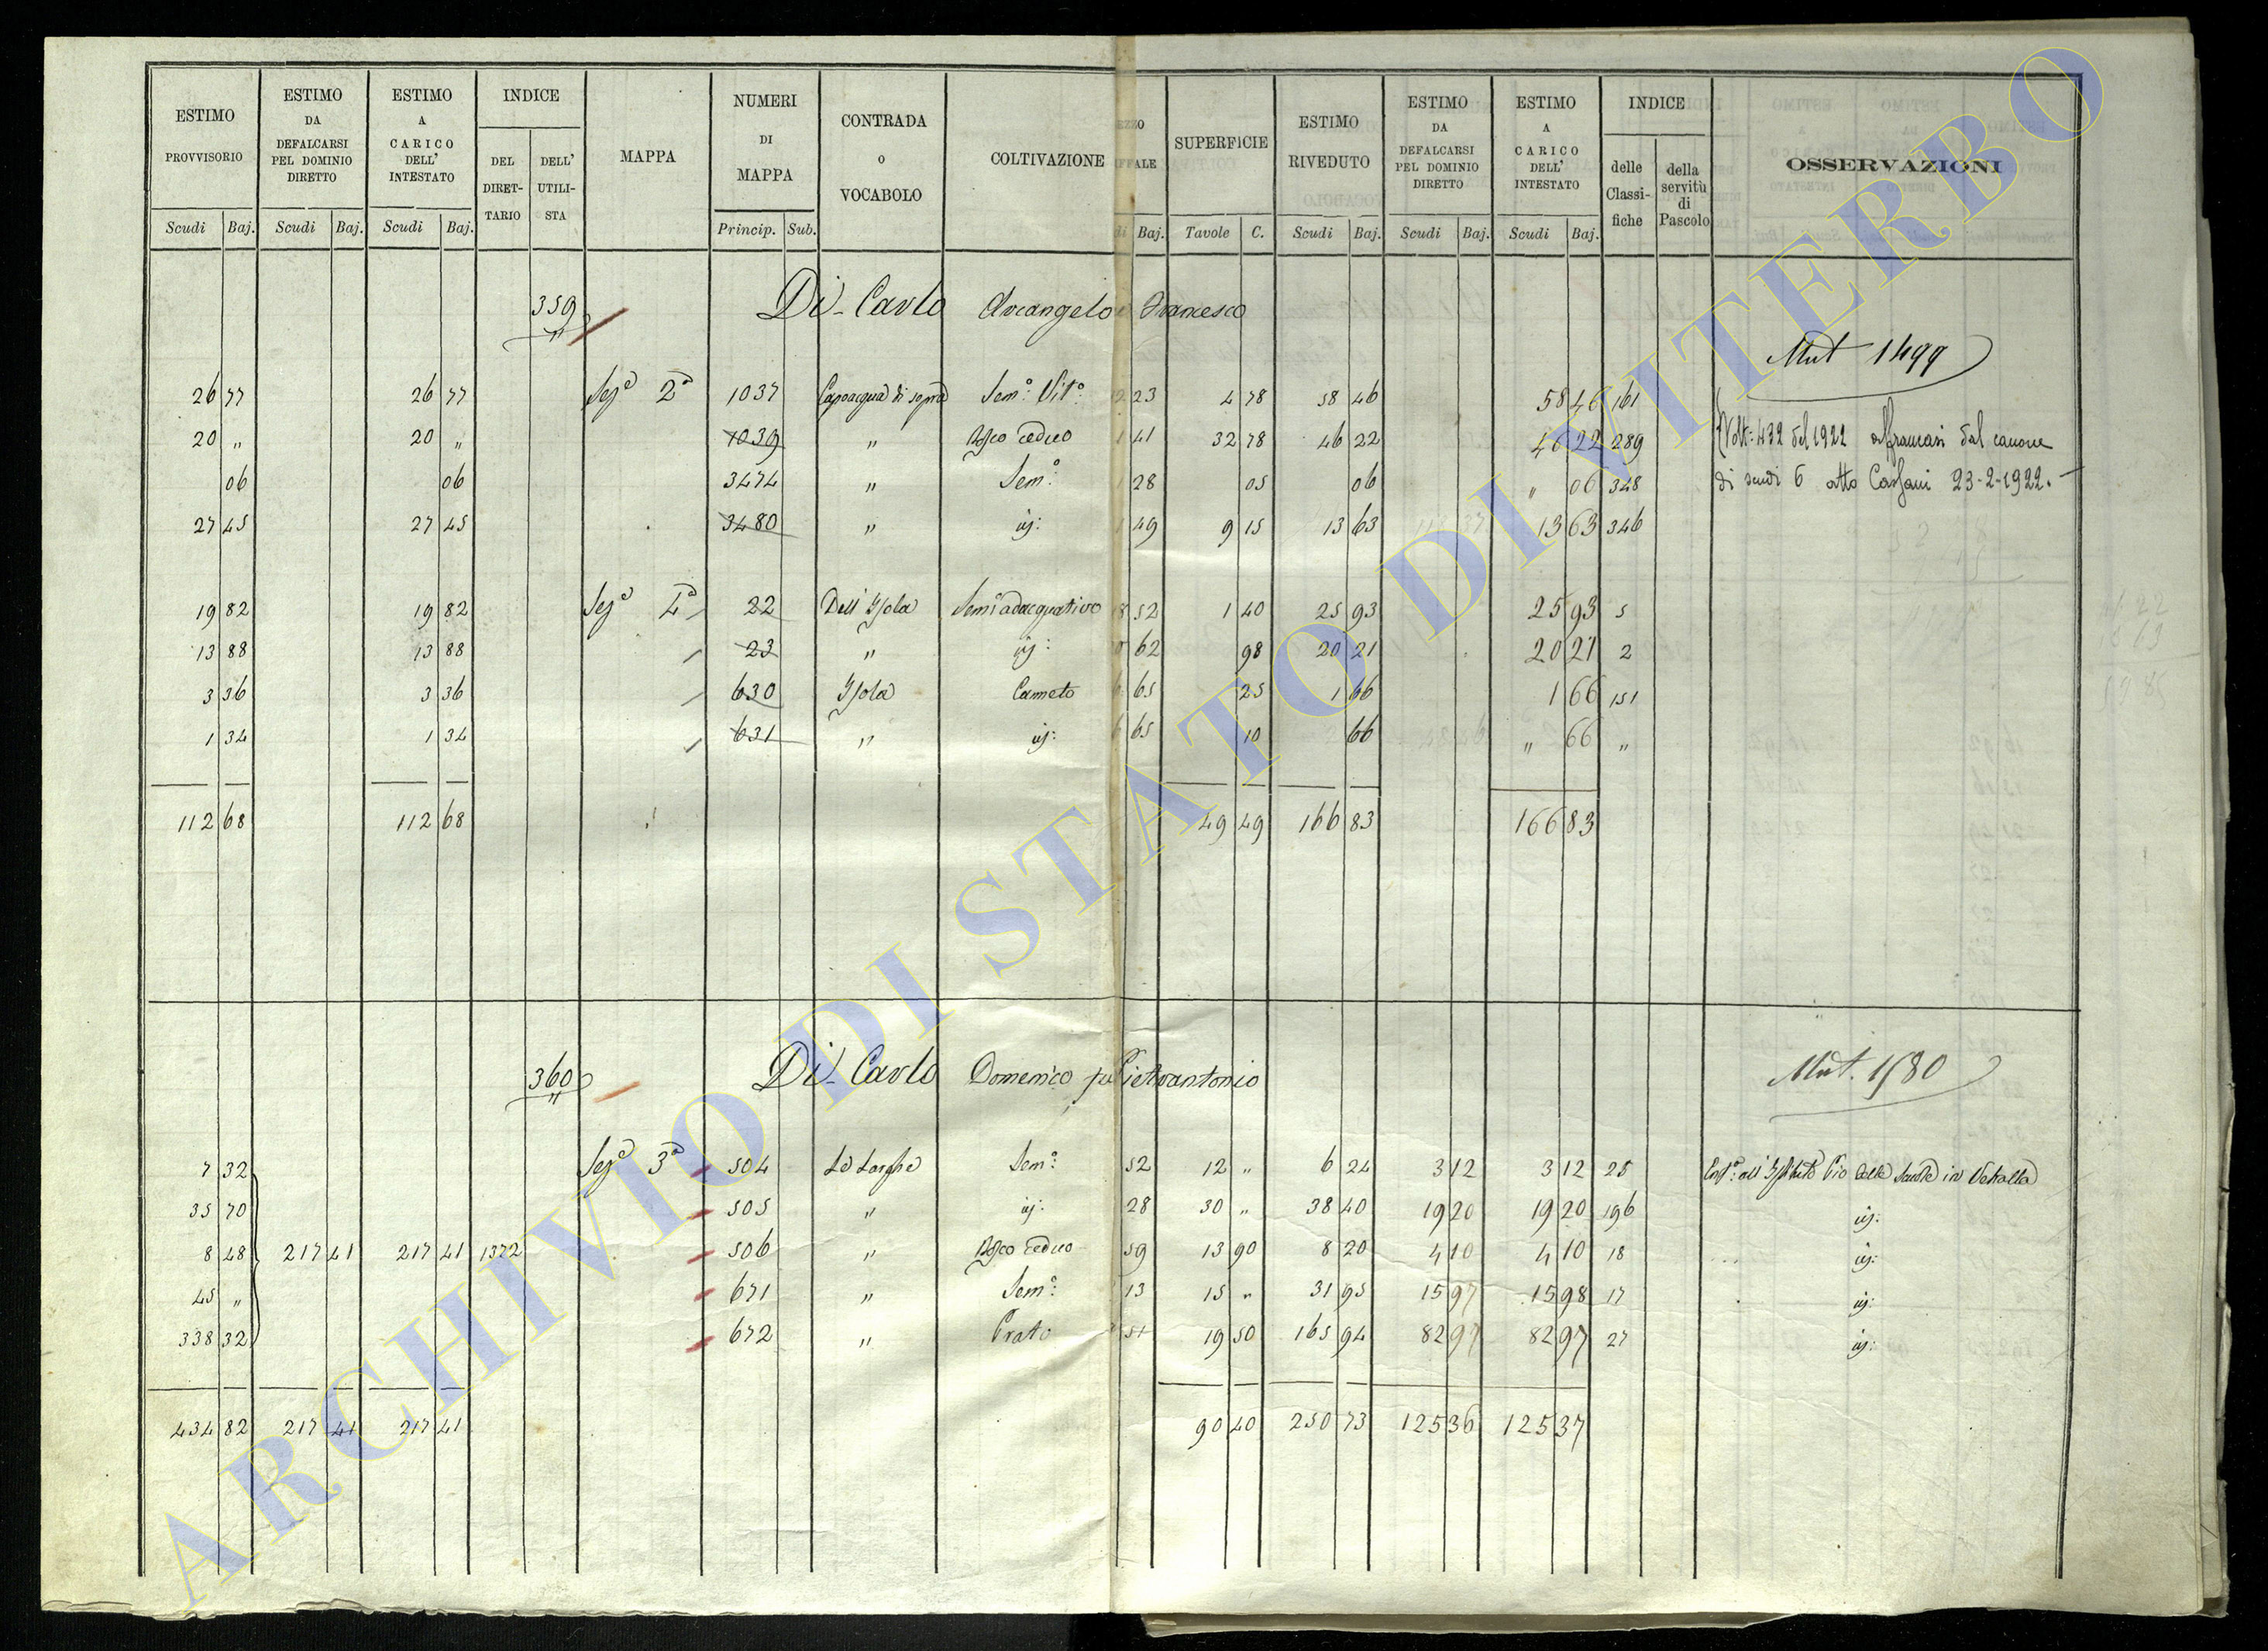 ESTIMO PROVVISORIO | ESTIMO DA DEFALCARSI PEL DOMINIO DIRETTO | ESTIMO A CARICO DELL' INTESTATO | INDICE | MAPPA | NUMERI DI MAPPA | CONTRADA O VOCABOLO | COLTIVAZIONE | EZZO IFFALE | SUPERFICIE | ESTIMO RIVEDUTO | ESTIMO DA DEFALCARSI PEL DOMINIO DIRETTO | ESTIMO A CARICO DELL' INTESTATO | INDICE | OSSERVAZIONI
DEL DIRET-TARIO | DELL' UTILI-STA | delle Classi-fiche | della servitù di Pascolo
Scudi | Baj. | Scudi | Baj. | Scudi | Baj. | Princip. | Sub. | di | Baj. | Tavole | C. | Scudi | Baj. | Scudi | Baj. | Scudi | Baj.
359 Di Carlo Arcangelo Francesco
Mut 1499
26 77 | 26 77 | Sezᵉ 2ª | 1037 | Capoacqua di sopra | Sem.º Vit.º | 23 | 4 78 | 58 46 | 58 46 | 161
20 „ | 20 „ | 1039 | „ | Bosco ceduo | 41 | 32 78 | 46 22 | 46 22 | 289 | Volt: 432 del 1922 affrancasi dal canone
06 | 06 | 3474 | „ | Sem.º | 28 | 05 | 06 | „ 06 | 348 | di scudi 6 atto 23-2-1922.
27 45 | 27 45 | 3480 | „ | 49 | 9 15 | 13 63 | 13 63 | 346
19 82 | 19 82 | Sezᵉ | 22 | Dell' Isola | Sem.º adacquativo | 52 | 1 40 | 25 93 | 25 93 | 5
13 88 | 13 88 | 23 | „ | 62 | 98 | 20 21 | 20 21 | 2
3 36 | 3 36 | 630 | Isola | Canneto | 65 | 25 | 1 66 | 1 66 | 151
1 34 | 1 34 | 631 | „ | 65 | 10 | 66 | „ 66 | „
112 68 | 112 68 | 49 49 | 166 83 | 166 83
360 Di Carlo Domenico fu Pietrantonio
Mut. 1580
7 32 | Sezᵉ 3ª | 504 | Le Larghe | Sem.º | 52 | 12 „ | 6 24 | 3 12 | 3 12 | 25 | all' Istituto Pio delle Scuole in Vetralla
35 70 | 505 | „ | 28 | 30 „ | 38 40 | 19 20 | 19 20 | 196
8 48 | 217 41 | 217 41 | 1372 | 506 | „ | Bosco ceduo | 59 | 13 90 | 8 20 | 4 10 | 4 10 | 18
45 „ | 671 | „ | Sem.º | 13 | 15 „ | 31 95 | 15 97 | 15 98 | 17
338 32 | 672 | „ | Prato | 51 | 19 50 | 165 94 | 82 97 | 82 97 | 27
434 82 | 217 41 | 217 41 | 90 40 | 250 73 | 125 36 | 125 37
ARCHIVIO DI STATO DI VITERBO